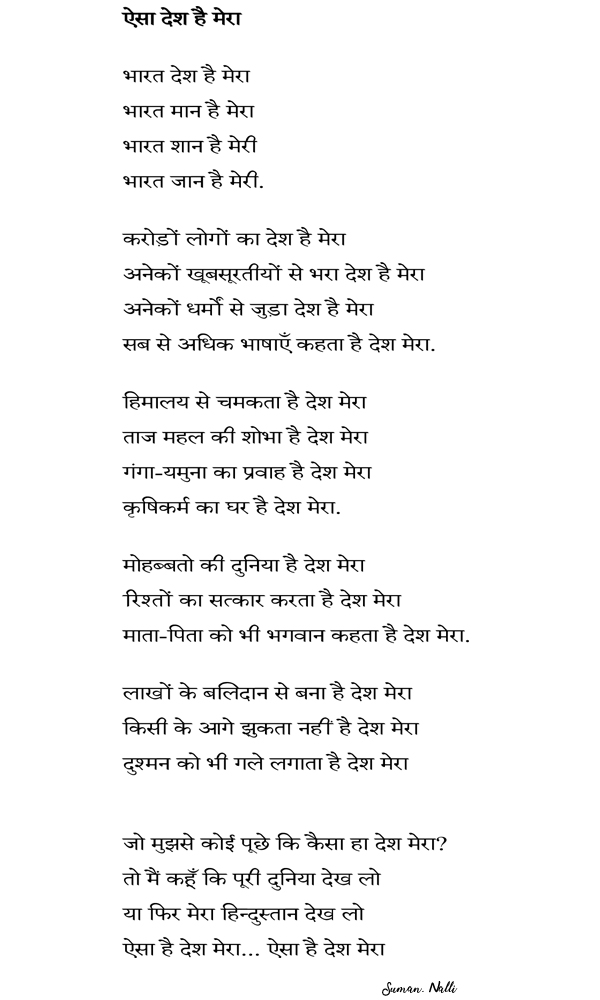 ऐसा देश है मेरा
भारत देश है मेरा
भारत मान है मेरा
भारत शान है मेरी
भारत जान है मेरी.
करोड़ों लोगों का देश है मेरा
अनेकों खूबसूरतीयों से भरा देश है मेरा
अनेकों धर्मों से जुड़ा देश है मेरा
सब से अधिक भाषाएँ कहता है देश मेरा.
हिमालय से चमकता है देश मेरा
ताज महल की शोभा है देश मेरा
गंगा-यमुना का प्रवाह है देश मेरा
कृषिकर्म का घर है देश मेरा.
मोहब्बतो की दुनिया है देश मेरा
रिश्तों का सत्कार करता है देश मेरा
माता-पिता को भी भगवान कहता है देश मेरा.
लाखों के बलिदान से बना है देश मेरा
किसी के आगे झुकता नहीं है देश मेरा
दुश्मन को भी गले लगाता है देश मेरा
जो मुझसे कोई पूछे कि कैसा हा देश मेरा?
तो मैं कहूँ कि पूरी दुनिया देख लो
या फिर मेरा हिन्दुस्तान देख लो
ऐसा है देश मेरा... ऐसा है देश मेरा
Suman. Nalli